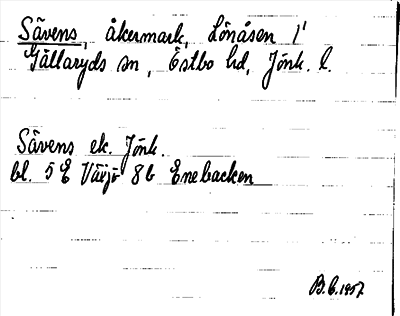 Sävens, åkermark, Lönåsen 1¹
Gällaryds sn, Östbo hd, Jönk. l.
Sävens ek. Jönk.
bl. 5 E Växjö 8b Enebacken
B.C. 1957